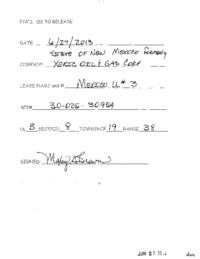 DATE 6/27/2013
STATE OF NEW MEXICO formerly
COMPANY XERIC OIL & GAS CORP
LEASE NAME and # MEXICO U # 3
API# 30-025-30954
UL B SECTION 8 TOWNSHIP 19 RANGE 38
SIGNED
JUN 27